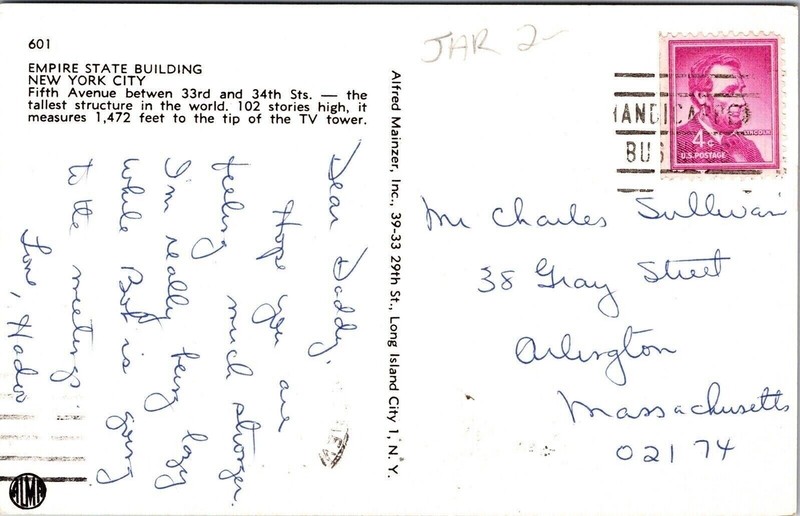 601
EMPIRE STATE BUILDING
NEW YORK CITY
Fifth Avenue betwen 33rd and 34th Sts. — the
tallest structure in the world. 102 stories high, it
measures 1,472 feet to the tip of the TV tower.
Dear Daddy,
Hope you are
feeling much stronger.
I'm really being lazy
while Bert is going
to the meetings.
Love,
ALMA
Alfred Mainzer, Inc., 39-33 29th St., Long Island City 1, N. Y.
JAR 2-
HANDICAPPED
BUS
LINCOLN
4¢
U.S. POSTAGE
Mr Charles Sullivan
38 Gray Street
Arlington
Massachusetts
02174